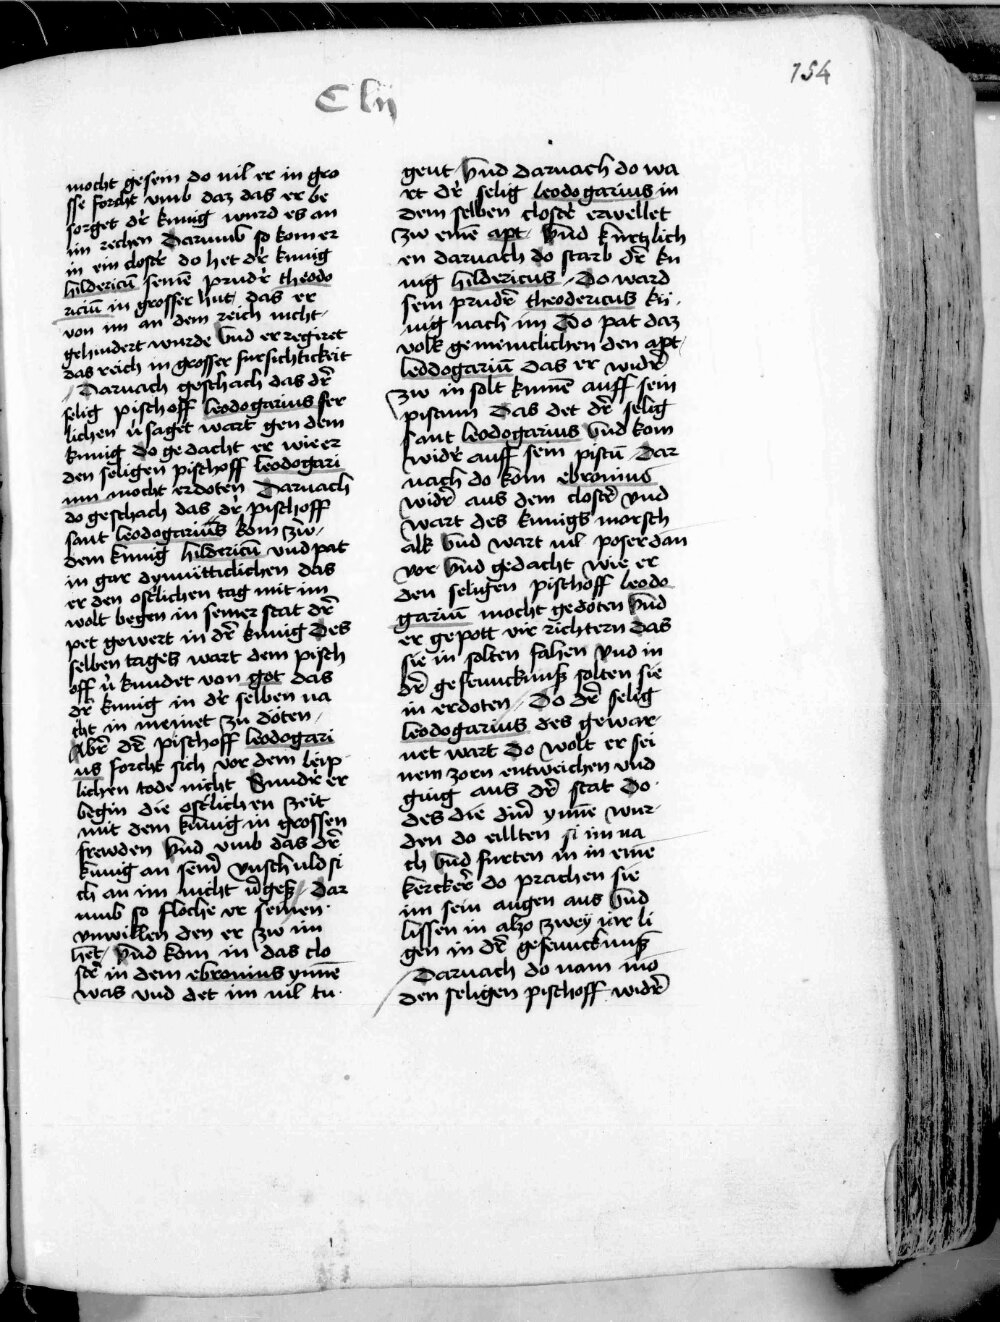 154
C lij
mocht gesein do uil er in gro
sse forcht vmb daz das er be
sorget dr̄ kunig wurd es an
im rechen Darumb so kom er
in ein clostr̄ do het dr̄ kunig
hildericū seinē prudr̄ theodo
ricū in grosser hut das er
von im an dem reich nicht
gehindert wurde vnd er regiret
das reich in grosser fursichtickeit
Darnach geschach das dr̄
selig pischoff leodogarius ser
lichen v̄saget wart gen dem
kunig do gedacht er wie er
den seligen pischoff leodogari
um mocht erdoten Darnach
do geschach das dr̄ pischoff
sant leodogarius kom zw
dem kunig hildericū vnd pat
in gar dymütticlichen das
er den ostlichen tag mit im
wolt begen in seiner stat dr̄
pet gewert in dr̄ kunig Des
selben tages wart dem pisch
off v̄kundet von got das
dr̄ kunig in dr̄ selben na
cht in meinet zu döten
Abr̄ dr̄ pischoff leodogari
us forcht sich vor dem leip
lichen tode nicht Sundr̄ er
begin die ostlichen zeit
mit dem kunig in grossen
frewden vnd vmb das dr̄
kunig an seinr̄ vnschuld si
ch an im nicht v̄gesz Dar
umb so flöche er seinen
vnwillen den er zw im
het vnd kom in das clo
str̄ in dem ebronius ynnē
was vnd det im uil tu
gent vnd darnach do wa
rt dr̄ selig leodogarius in
dem selben clostr̄ erwellet
zw einē apt vnd kürtzlich
en darnach do starb dr̄ ku
nig hildericus Do ward
sein prudr̄ theodericus kü
nig nach im Do pat daz
volk gemeiniclichen den apt
leddogariū das er widr̄
zw in solt kumē auff sein
pistum Das det dr̄ selig
sant leodogarius vnd kom
widr̄ auff sein pistū Dar
nach do kom ebronius
widr̄ aus dem clostr̄ vnd
wart des kunigs morsch
alk vnd wart uil poser dan
vor vnd gedacht wie er
den seligen pischoff leodo
gariū mocht gedöten vnd
er gepott vir richtern das
sie in solten fahen vnd in
dr̄ gefenncknusz solten sie
in erdoten Do dr̄ selig
leodogarius des gewar
net wart Do wolt er sei
nem zorn entweichen vnd
ging aus dr̄ stat Do
des die dinr̄ ynnē wur
den do eillten si im na
ch vnd furten in in eine
kerckr̄ do prachen sie
im sein augen aus vnd
lissen in alzo zwey iar li
gen in dr̄ gefenncknusz
Darnach do nam mō
den seligen pischoff widr̄